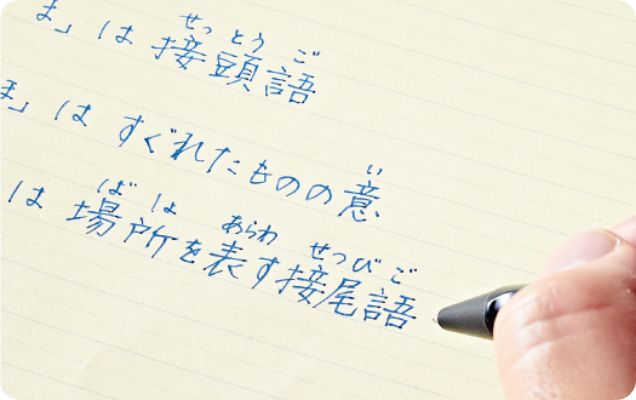 せっとうご
ま」は接頭語
い
ほ」はすぐれたものの意
ばしょ あらわ せつびご
は場所を表す接尾語